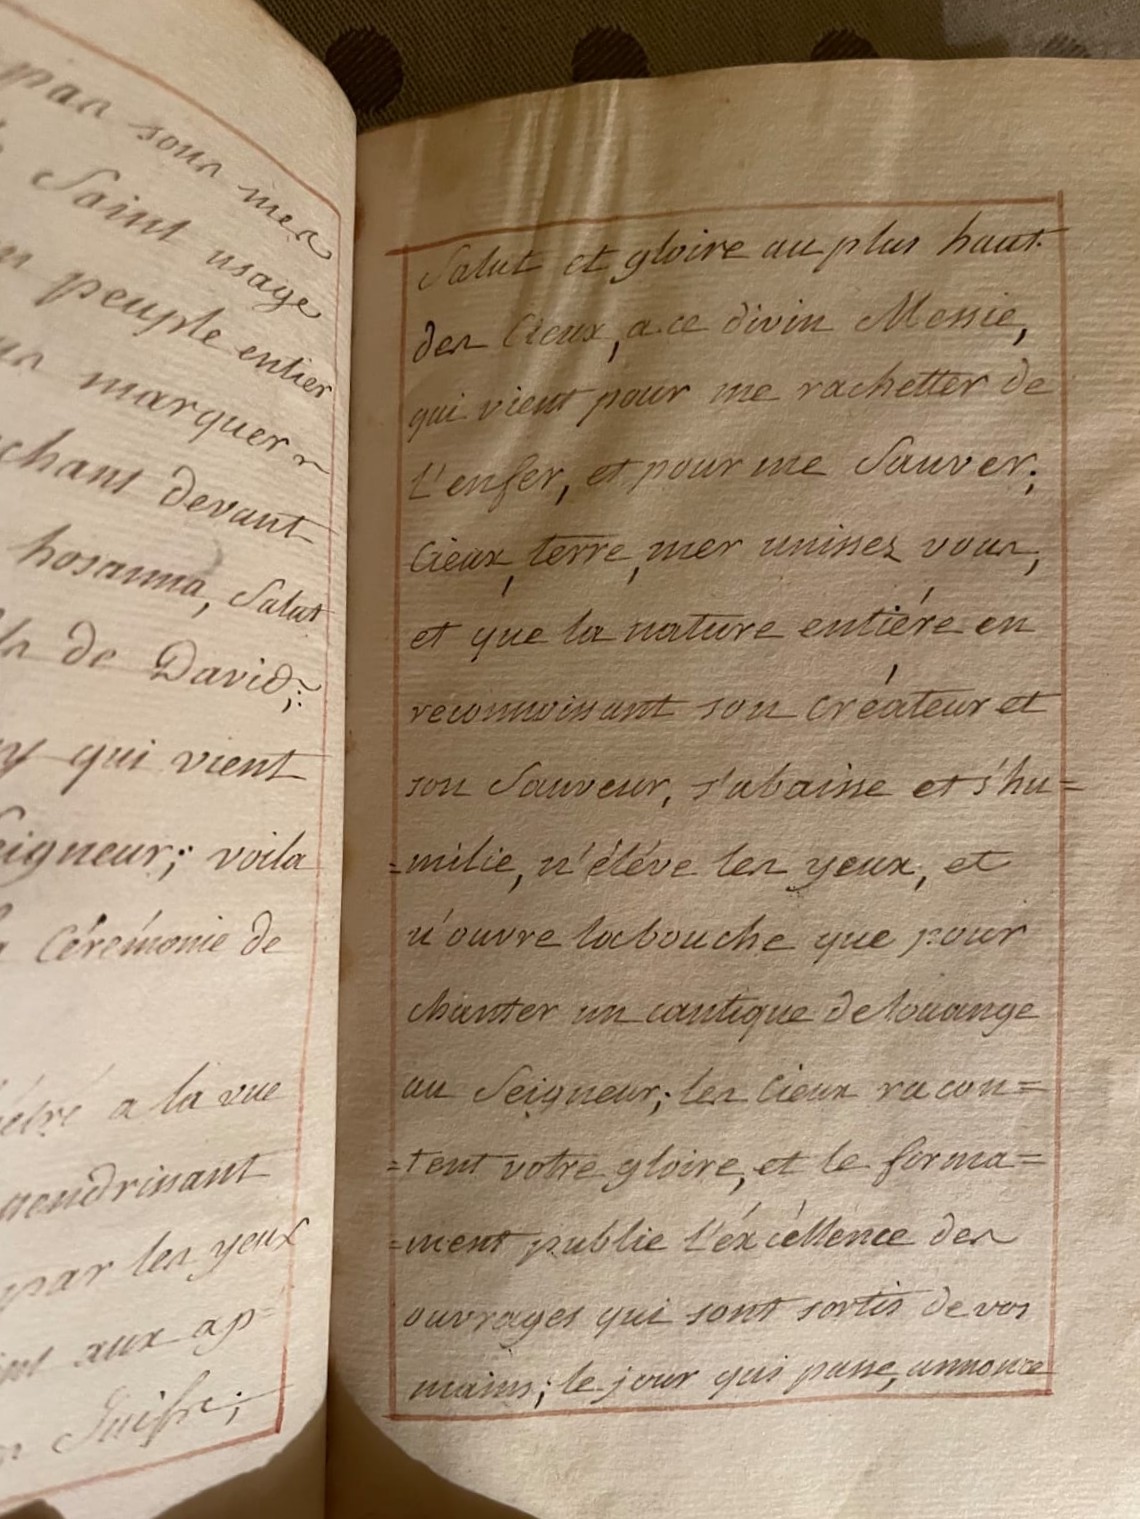 par sous mes
Saint usage
peuple entier
marquer
chant devant
hosanna, Salut
de David;
qui vient
Seigneur; voila
Cérémonie de
a la vue
par les yeux
aux ap=
Salut et gloire au plus haut
des Cieux, a ce divin Messie,
qui vient pour me rachetter de
L'enfer, et pour me Sauver;
Cieux, terre, mer unissez vous,
et que la nature entiére en
reconnoissant son Créateur et
son Sauveur, s'abaisse et s'hu=
=milie, n'éléve les yeux, et
n'ouvre la bouche que pour
chanter un cantique de louange
au Seigneur; les Cieux racon=
=tent votre gloire, et le forma=
=ment publie L'éxcéllence des
ouvrages qui sont sortis de vos
mains; le jour qui passe, annonce